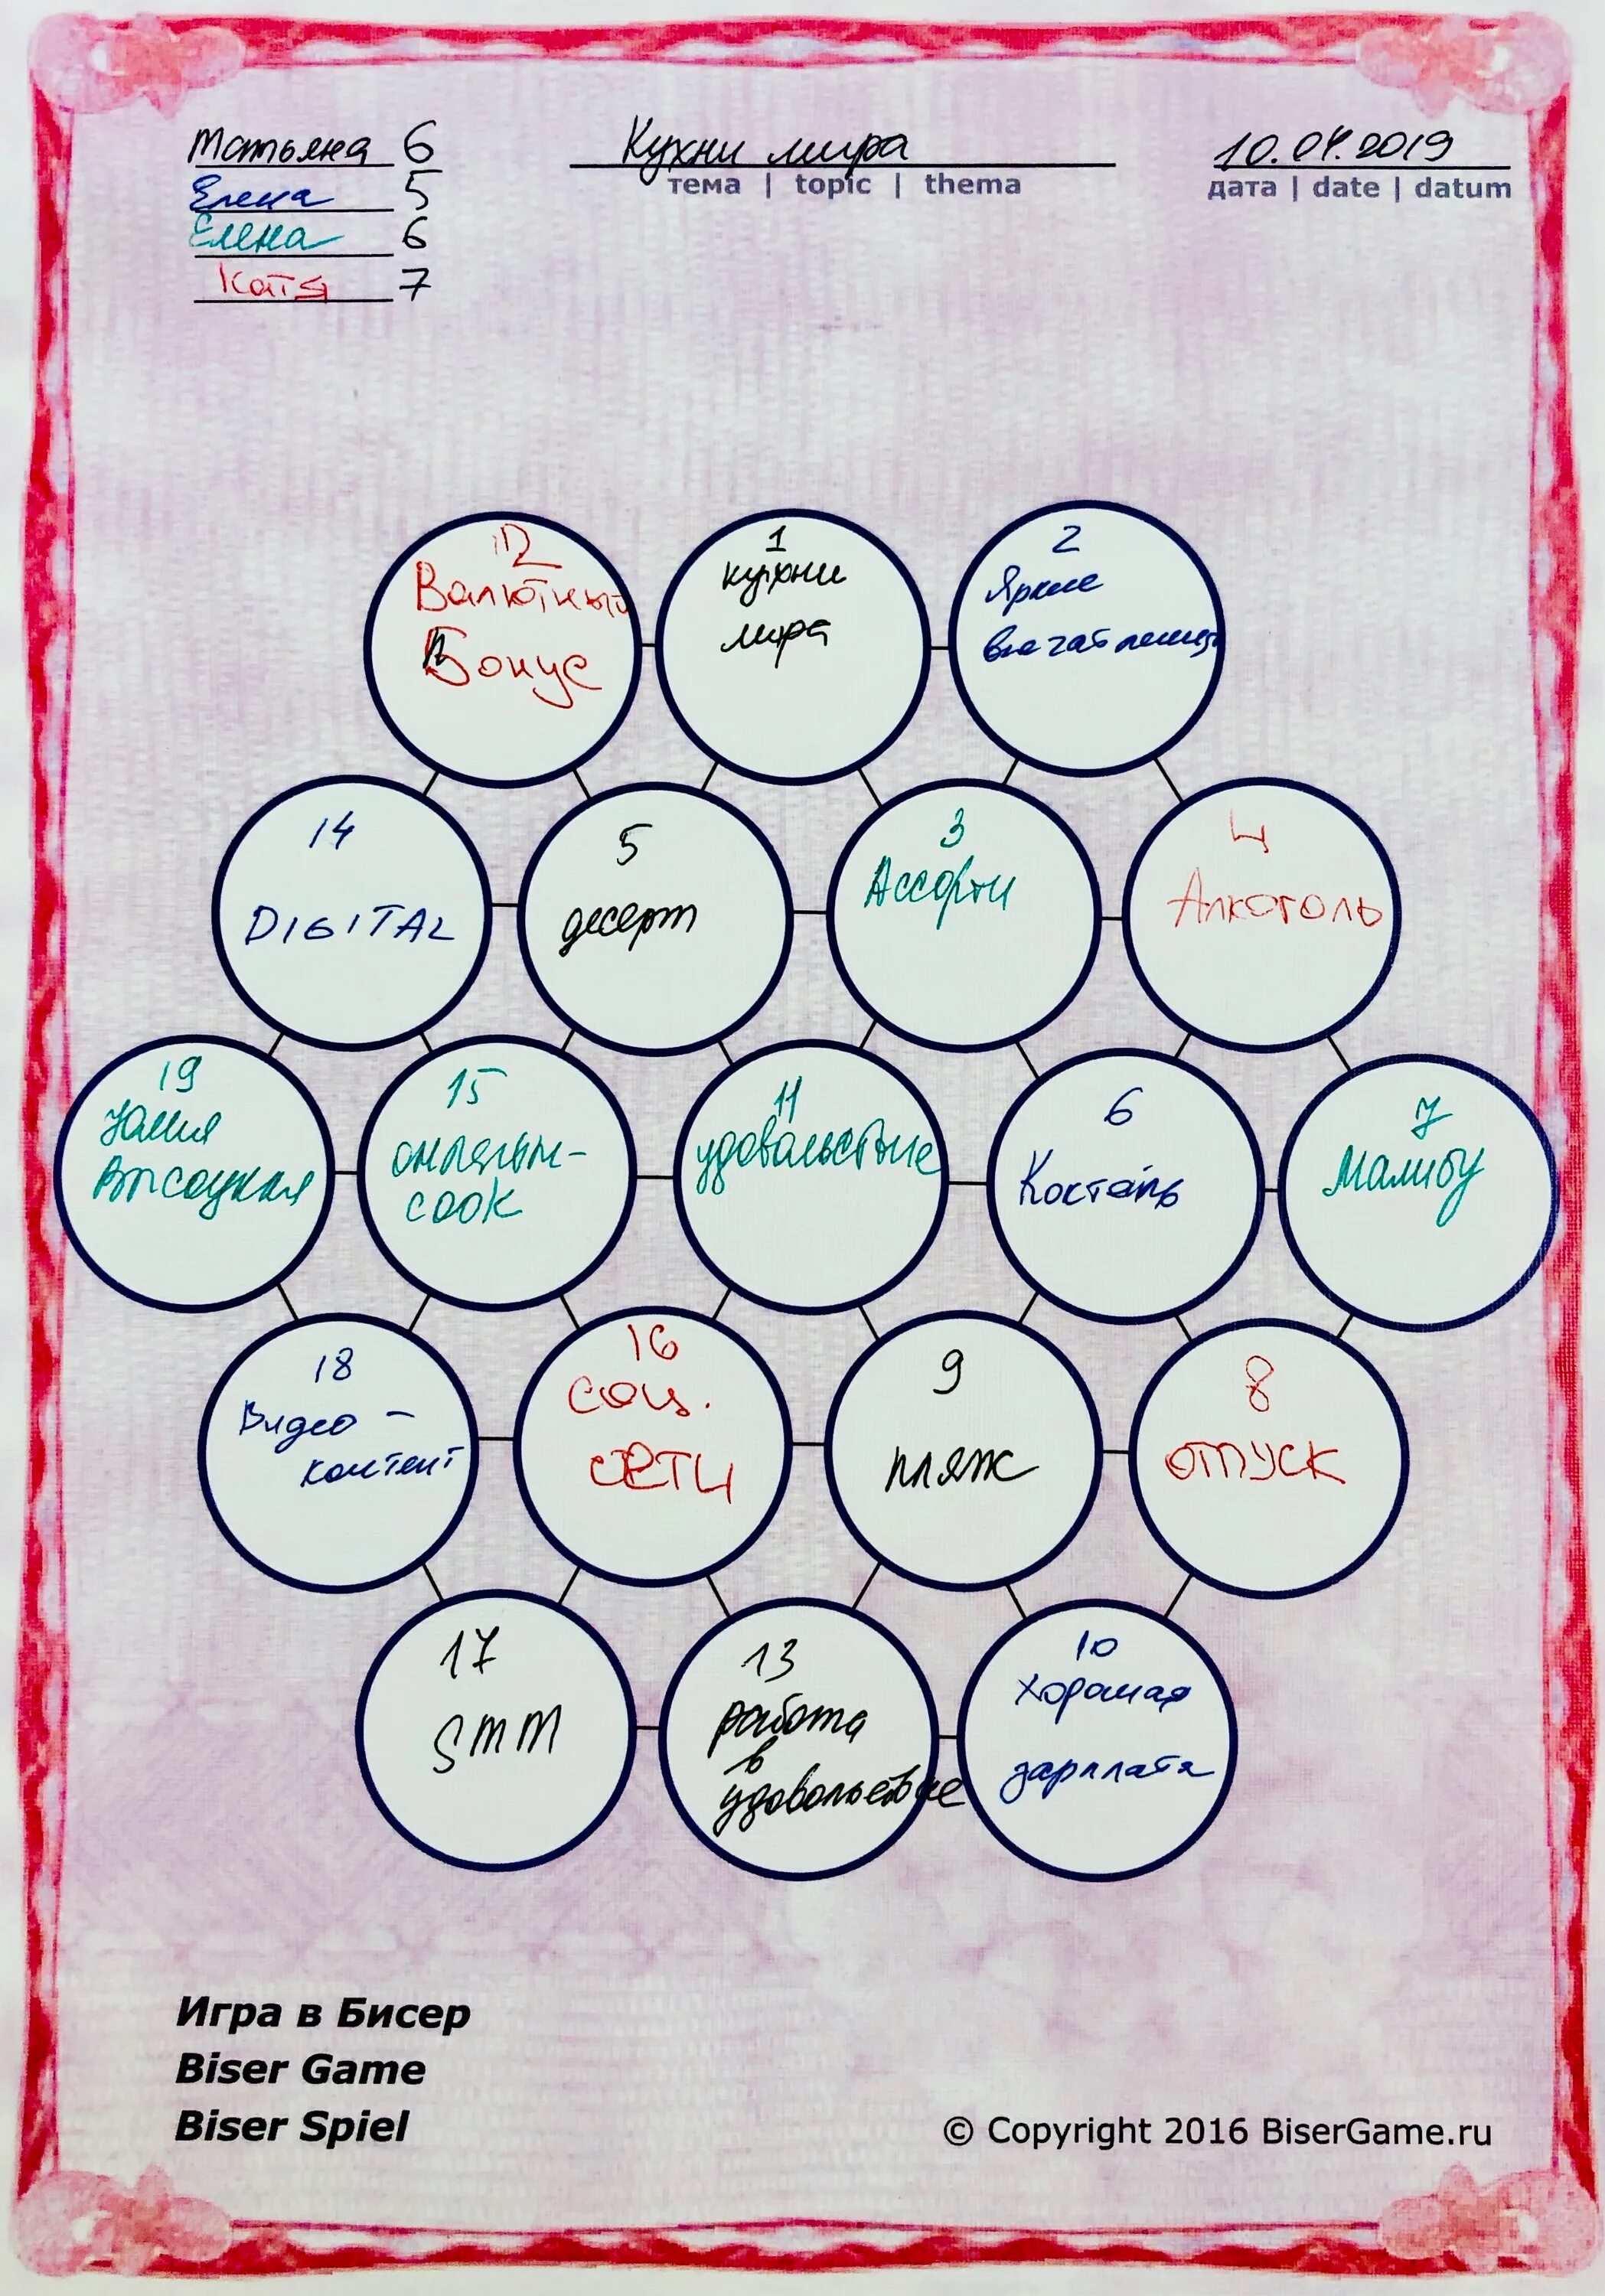 Татьяна 6
Елена 5
Елена 6
Катя 7
Кухни мира
тема | topic | thema
10.04.2019
дата | date | datum
12
Валютный
Бонус
1
кухни
мира
2
Яркие
впечатления
14
DIGITAL
5
десерт
3
Ассорти
4
Алкоголь
19
Юлия
Высоцкая
15
онлайн-
cook
11
удовольствие
6
Коктейль
7
Малибу
18
Видео -
контент
16
Соц.
сети
9
пляж
8
отпуск
17
SMM
13
работа
в
удовольствие
10
Хорошая
зарплата
Игра в Бисер
Biser Game
Biser Spiel
© Copyright 2016 BiserGame.ru